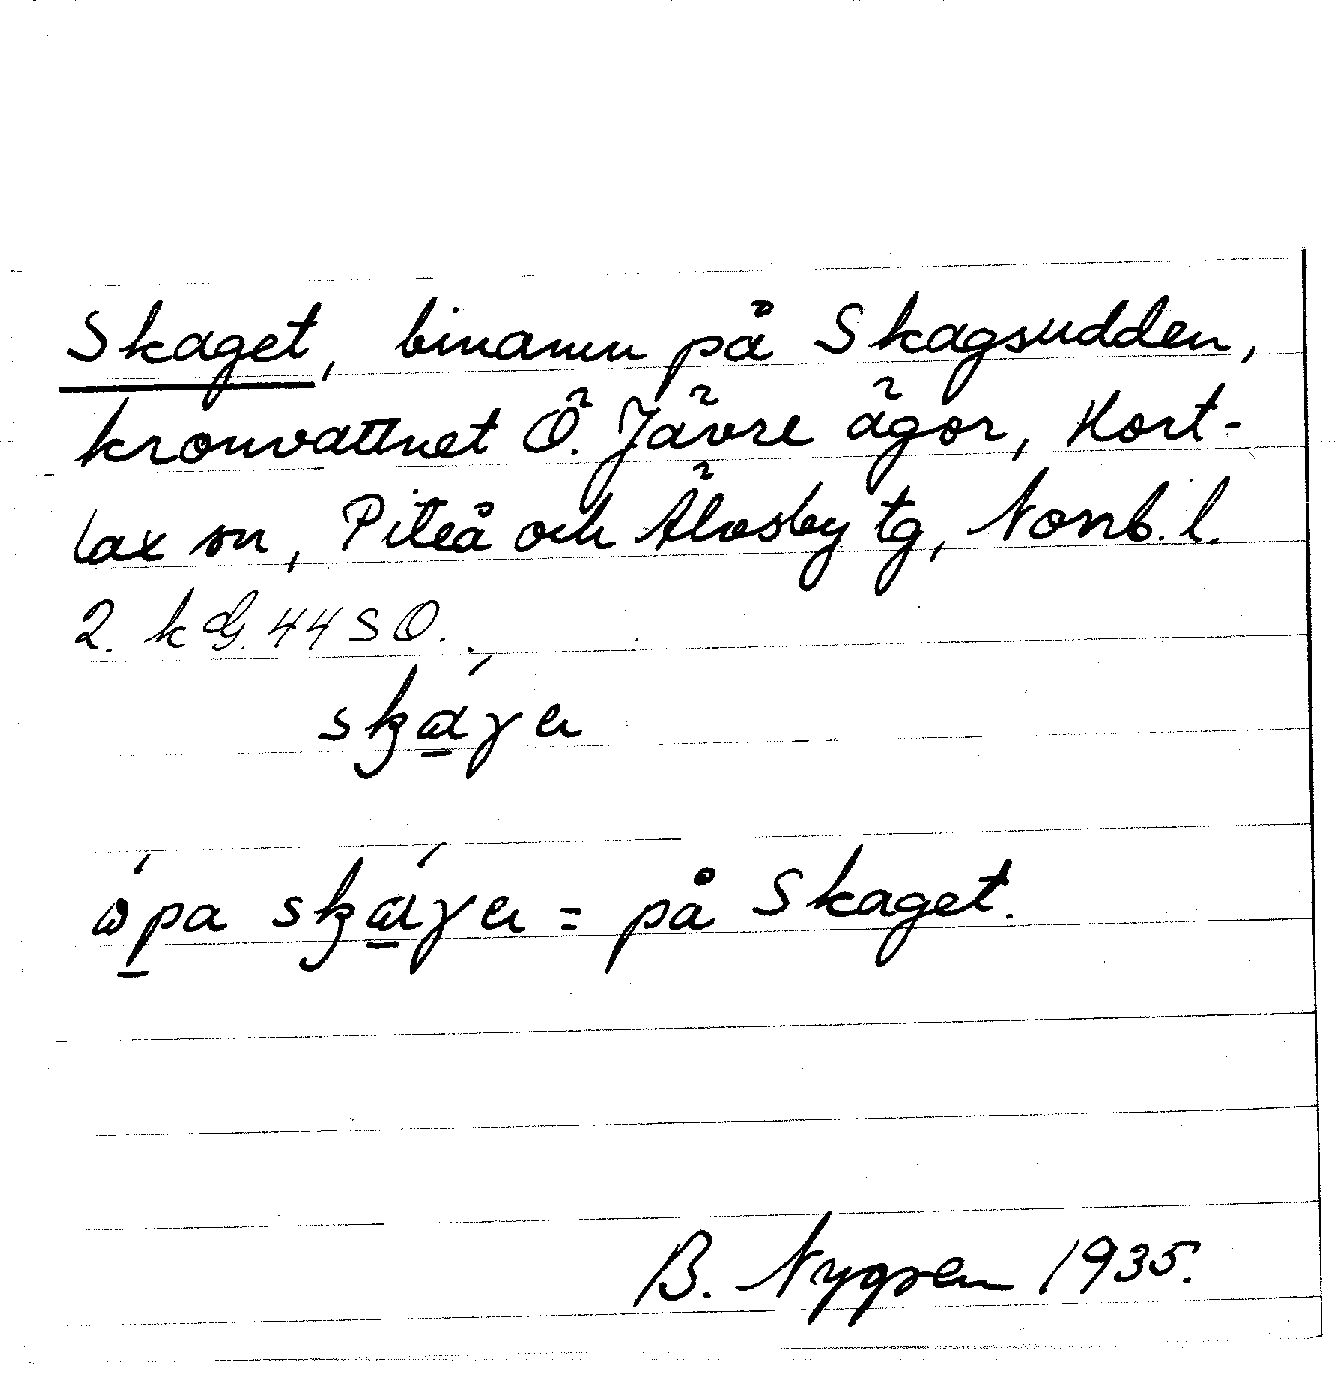 Skaget, binamn på Skagsudden,
kronvattnet Ö. Jävre ägor, Hort-
lax sn, Piteå och Älvsby tg, Norrb. l.
2. k G. 44 SO.
skáγɐ
ópa skáγɐ = på Skaget.
B. Nygren 1935.